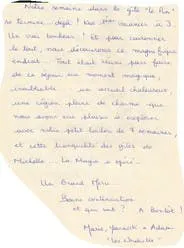 Notre semaine dans le gîte "le Pin"
se termine... déjà ! Nos 1ères vacances à 3.
Un vrai bonheur ! Et pour couronner
le tout, nous découvrons ce magnifique
endroit. Tout était réuni pour faire
de ce séjour un moment magique,
inoubliable : un accueil chaleureux,
une région pleine de charme que
nous avons eu plaisir à explorer
avec notre petit loulou de 7 semaines,
et cette tranquillité des gîtes de
Michelle... La Magie a opéré...
Un Grand Merci...
Bonne continuation
et qui sait ? A Bientôt !
Marie, Yannick + Adam